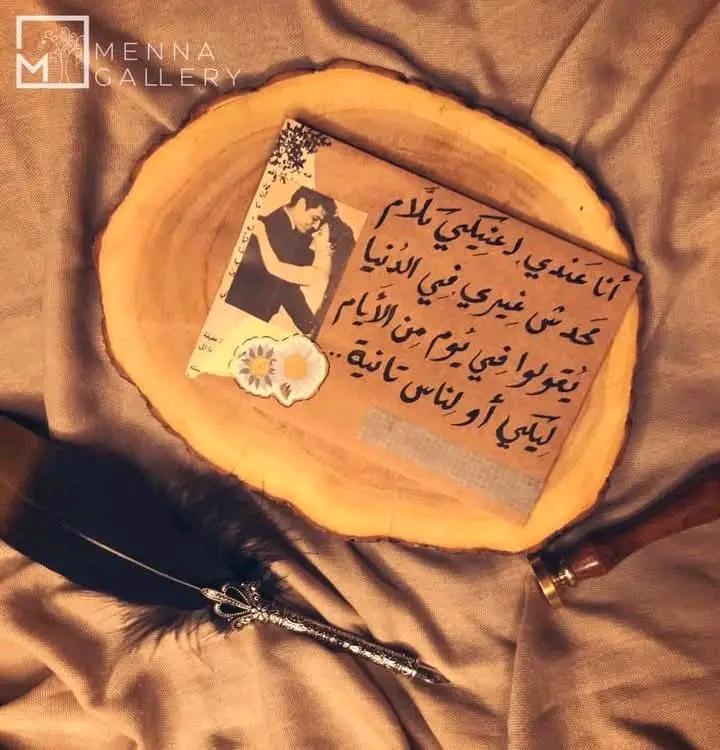 MENNA
GALLERY
أنا عَندي لعَنِيكي كَلَام
مَحدش غِيري فِي الدُنيا
يُقولوا فِي يُوم مِن الأَيام
لِيكي أو لِناس تانية..